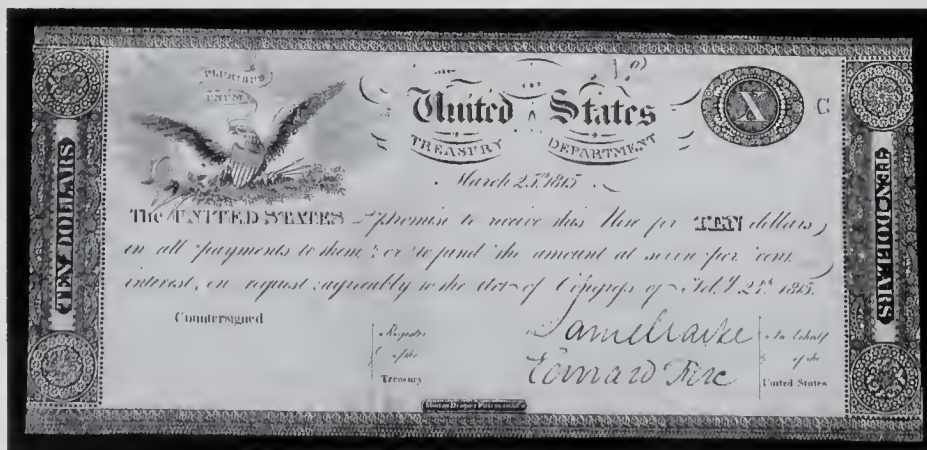 PLURIBUS
UNUM
United States
TREASURY DEPARTMENT
X
C
March 25th 1815
The UNITED STATES promise to receive this Note for TEN dollars
in all payments to them; or to fund the amount at seven per cent
interest, on request agreeably to the Act of Congress of Feb.y 24th 1815.
Countersigned
Register
of the
Treasury
In behalf
of the
United States
TEN DOLLARS
TEN DOLLARS